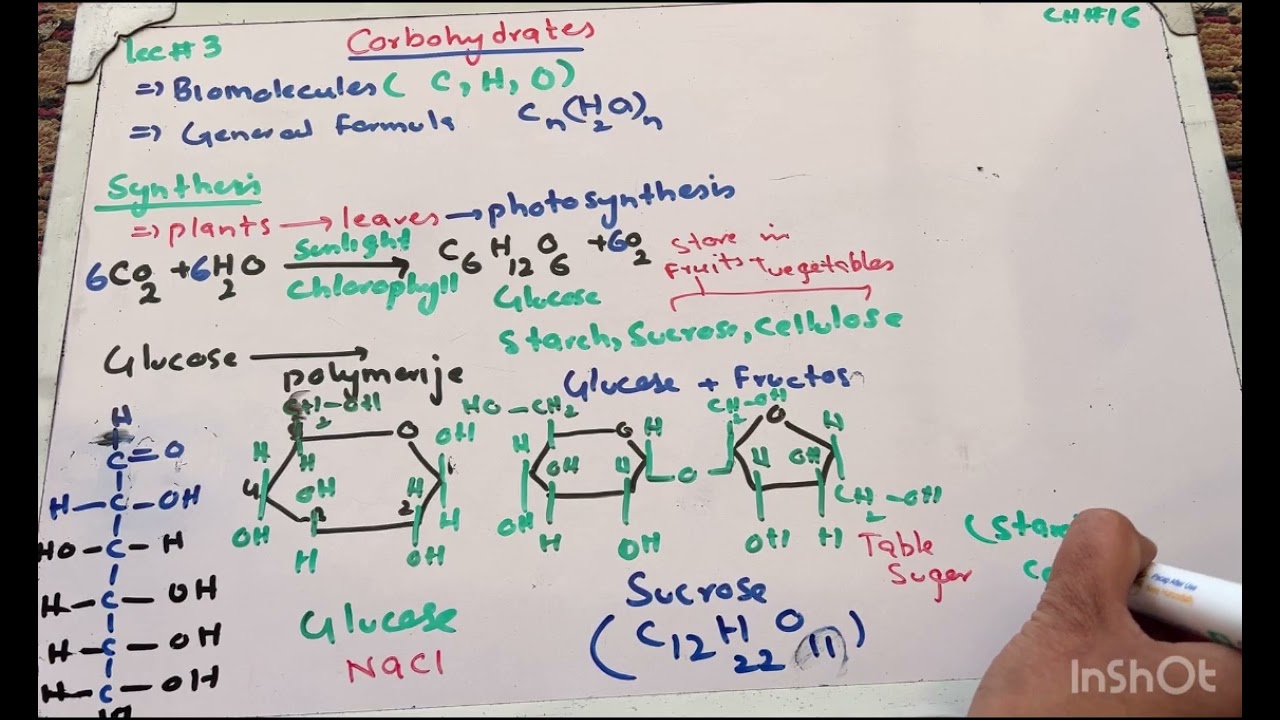 Lec# 3
Corbohydrates
CH#16
=> Biomolecules ( C, H, O)
=> General Formula Cn(H2O)n
Synthesis
=> plants → leaves → photosynthesis
6CO2 + 6H2O Sunlight Chlorophyll → C6H12O6 + 6O2
Glucose
Store in
Fruits + vegetables
Starch, Sucrose, Cellulose
Glucose → polymerije
Glucose + Fructos
H
C=O
H-C-OH
HO-C-H
H-C-OH
H-C-OH
H-C-OH
CH2-OH
O
H
OH
H
4
H
OH
H
2
OH
H
H
OH
Glucose
NaCl
HO-CH2
O
H
H
OH
H
OH
H
OH
O
CH2-OH
O
H
H
OH
OH
H
CH2-OH
Sucrose
(C12H22O11)
Table
Suger
(Star
C
InShOt